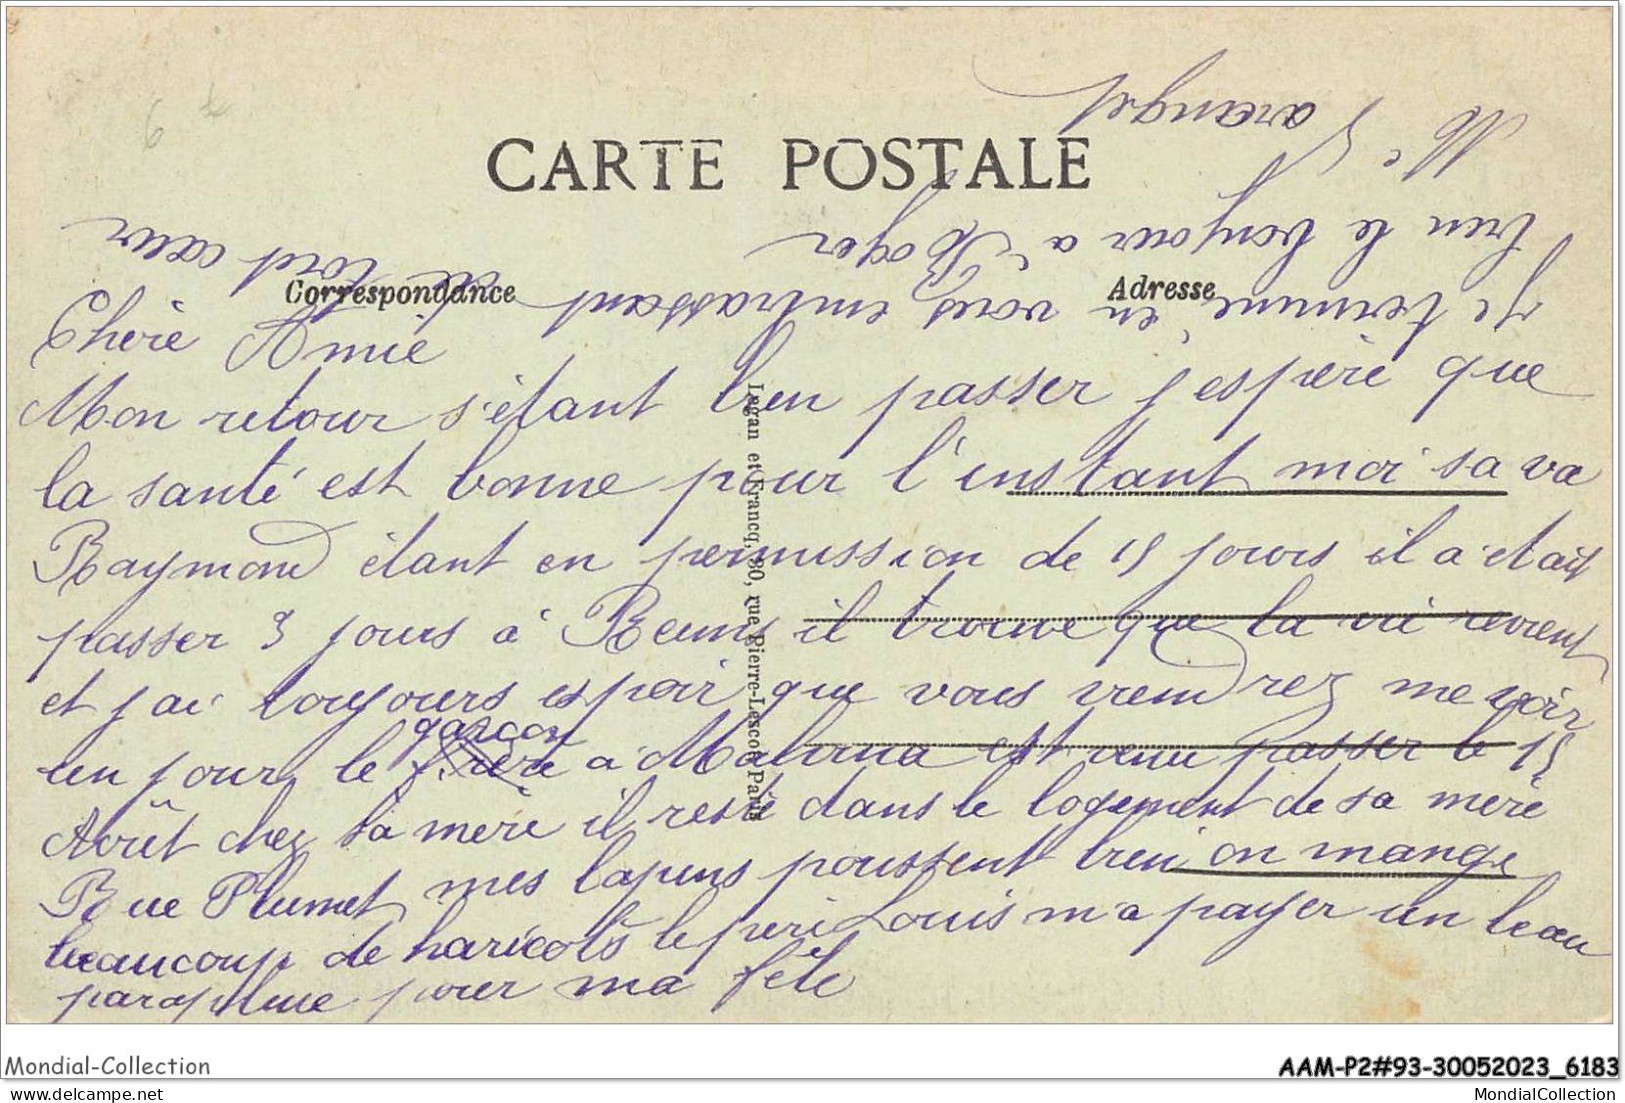 CARTE POSTALE
Correspondance
Adresse
Chère Amie
Mon retour s'étant bien passer j espère que
la santé est bonne pour l'instant moi sa va
Raymond étant en permission de 15 jours il a était
passer 3 jours à Reims il trouve que la vie revient
et j ai toujours espoir que vous viendrez me voir
un jour, le garçon a est venu passer le 15
Août chez sa mère il reste dans le logement de sa mère
Rue Plumet mes lapins poussent bien on mange
beaucoup de haricots le père Louis m'a payer un beau
parapluie pour ma fête
Je termine en vous embrassant de tout cœur
bien le bonjour à Roger
Me
Logan et Francq, 80, rue Pierre-Lescot, Paris
6 7
Mondial-Collection
AAM-P2#93-30052023_6183
The Best Of Past
MondialCollection